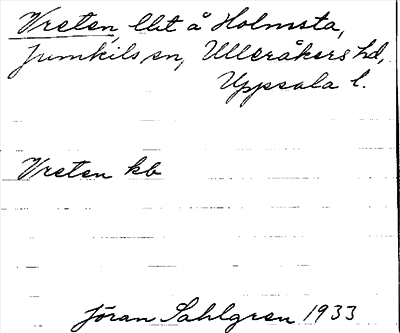 Vreten, lht å Holmsta,
Jumkils sn, Ulleråkers hd,
Uppsala l.
Vreten kb
Jöran Sahlgren 1933